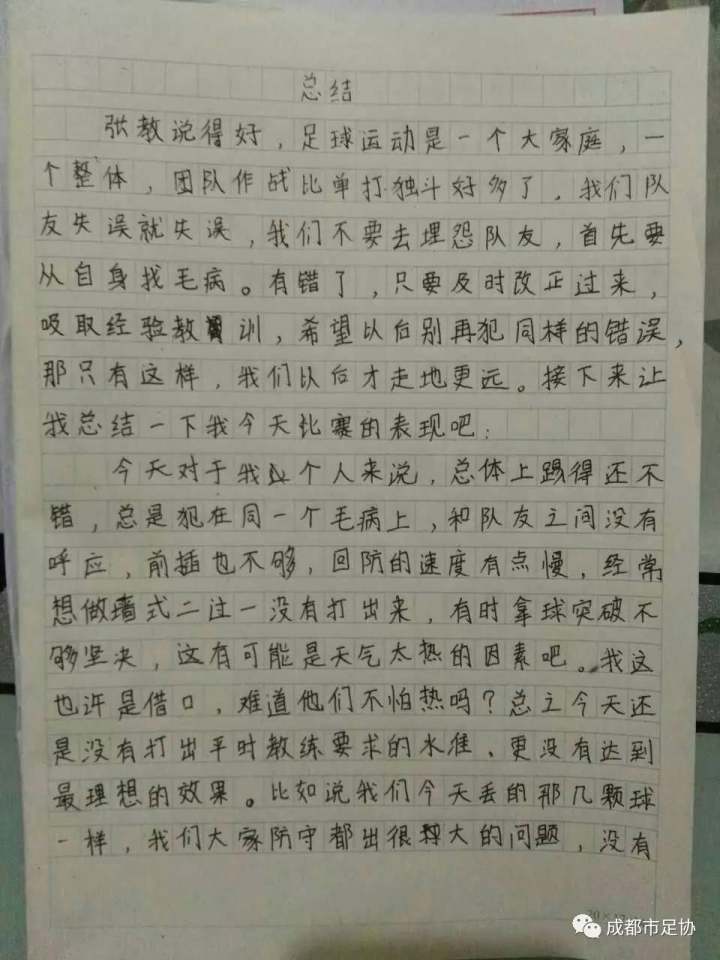 总结
张教说得好，足球运动是一个大家庭，一
个整体，团队作战比单打独斗好多了。我们队
友失误就失误，我们不要去埋怨队友，首先要
从自身找毛病。有错了，只要及时改正过来，
吸取经验教训，希望以后别再犯同样的错误，
那只有这样，我们以后才走地更远。接下来让
我总结一下我今天比赛的表现吧：
今天对于我个人来说，总体上踢得还不
错，总是犯在同一个毛病上，和队友之间没有
呼应，前插也不够，回防的速度有点慢，经常
想做墙式二过一没有打出来，有时拿球突破不
够坚决，这有可能是天气太热的因素吧。我这
也许是借口，难道他们不怕热吗？总之今天还
是没有打出平时教练要求的水准、更没有达到
最理想的效果。比如说我们今天丢的那几颗球
一样，我们大家防守都出很大的问题，没有
成都市足协